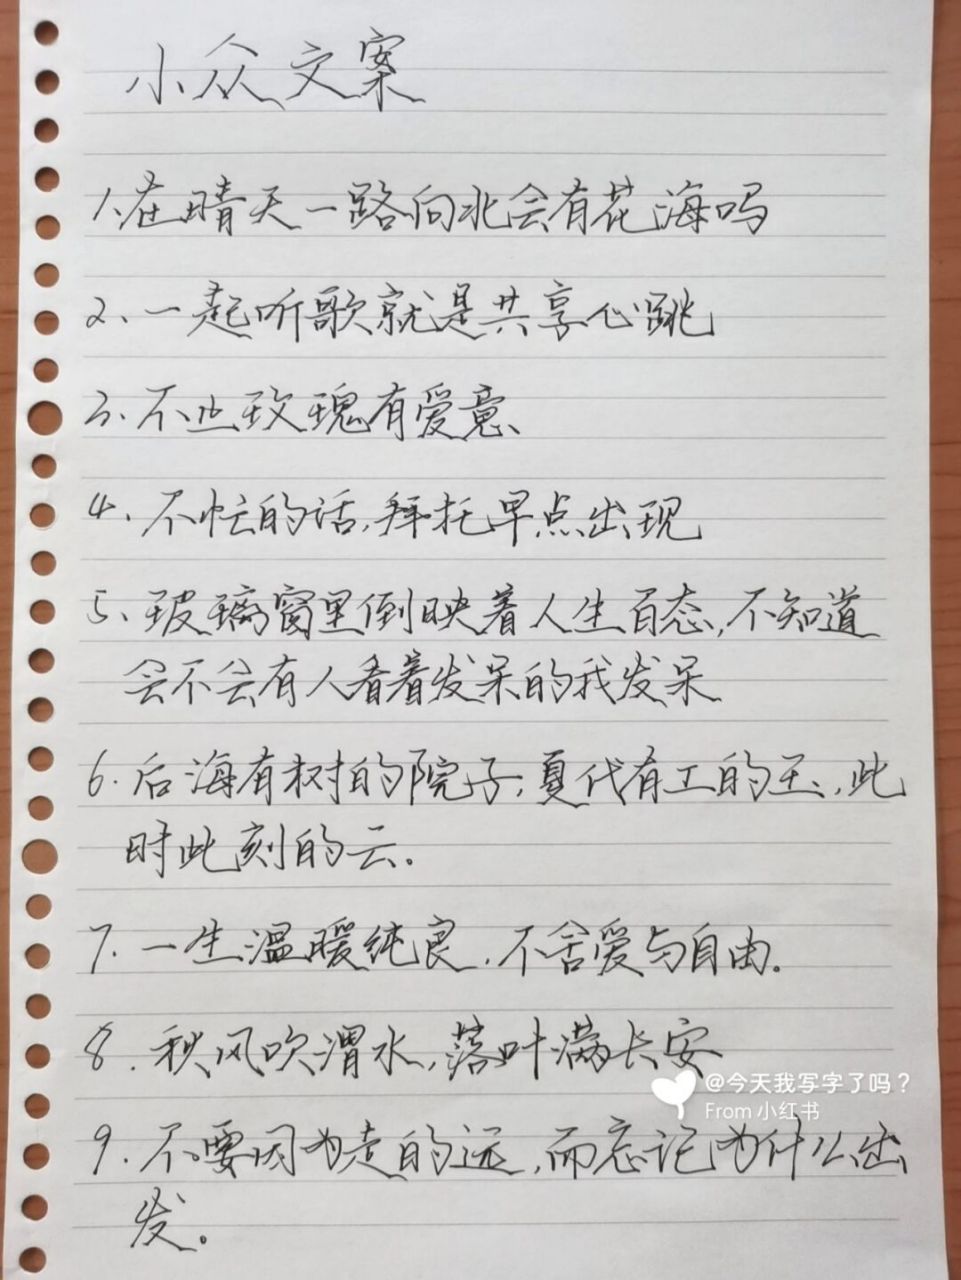 小众文案
1、在晴天一路向北会有花海吗
2、一起听歌就是共享心跳
3、不止玫瑰有爱意、
4、不忙的话,拜托早点出现
5、玻璃窗里倒映着人生百态,不知道
会不会有人看着发呆的我发呆
6.后海有树的院子,夏代有工的玉,此
时此刻的云。
7.一生温暖纯良,不舍爱与自由。
8.秋风吹渭水,落叶满长安
@今天我写字了吗?
From 小红书
9.不要因为走的远,而忘记为什么出
发。